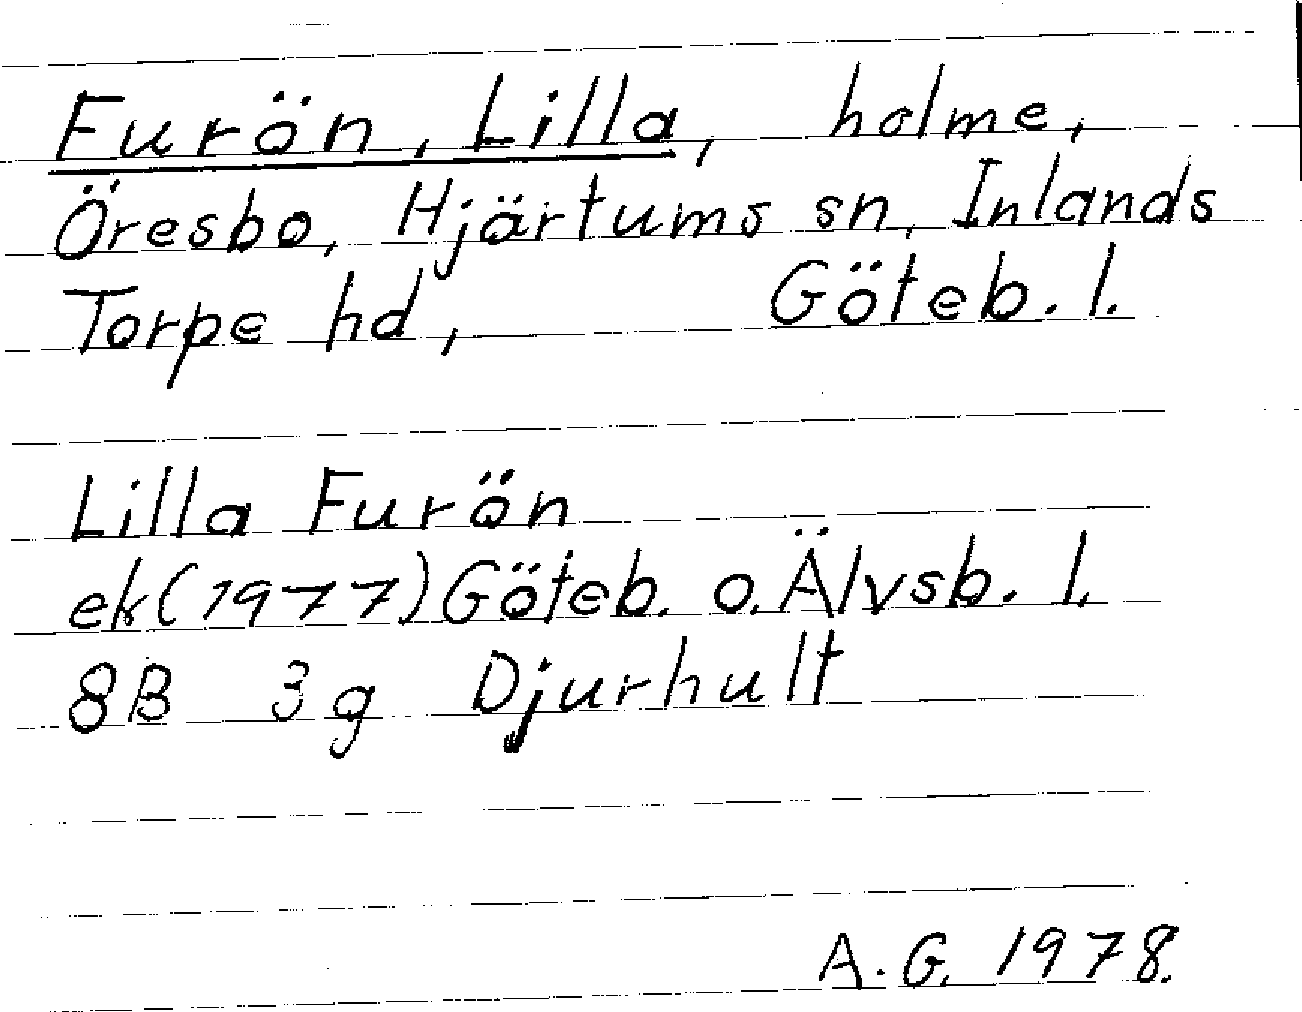 Furön, Lilla, holme,
Öresbo, Hjärtums sn, Inlands
Torpe hd, Göteb. l.
Lilla Furön
ek (1977) Göteb. o. Älvsb. l.
8B 3g Djurhult
A.G. 1978.